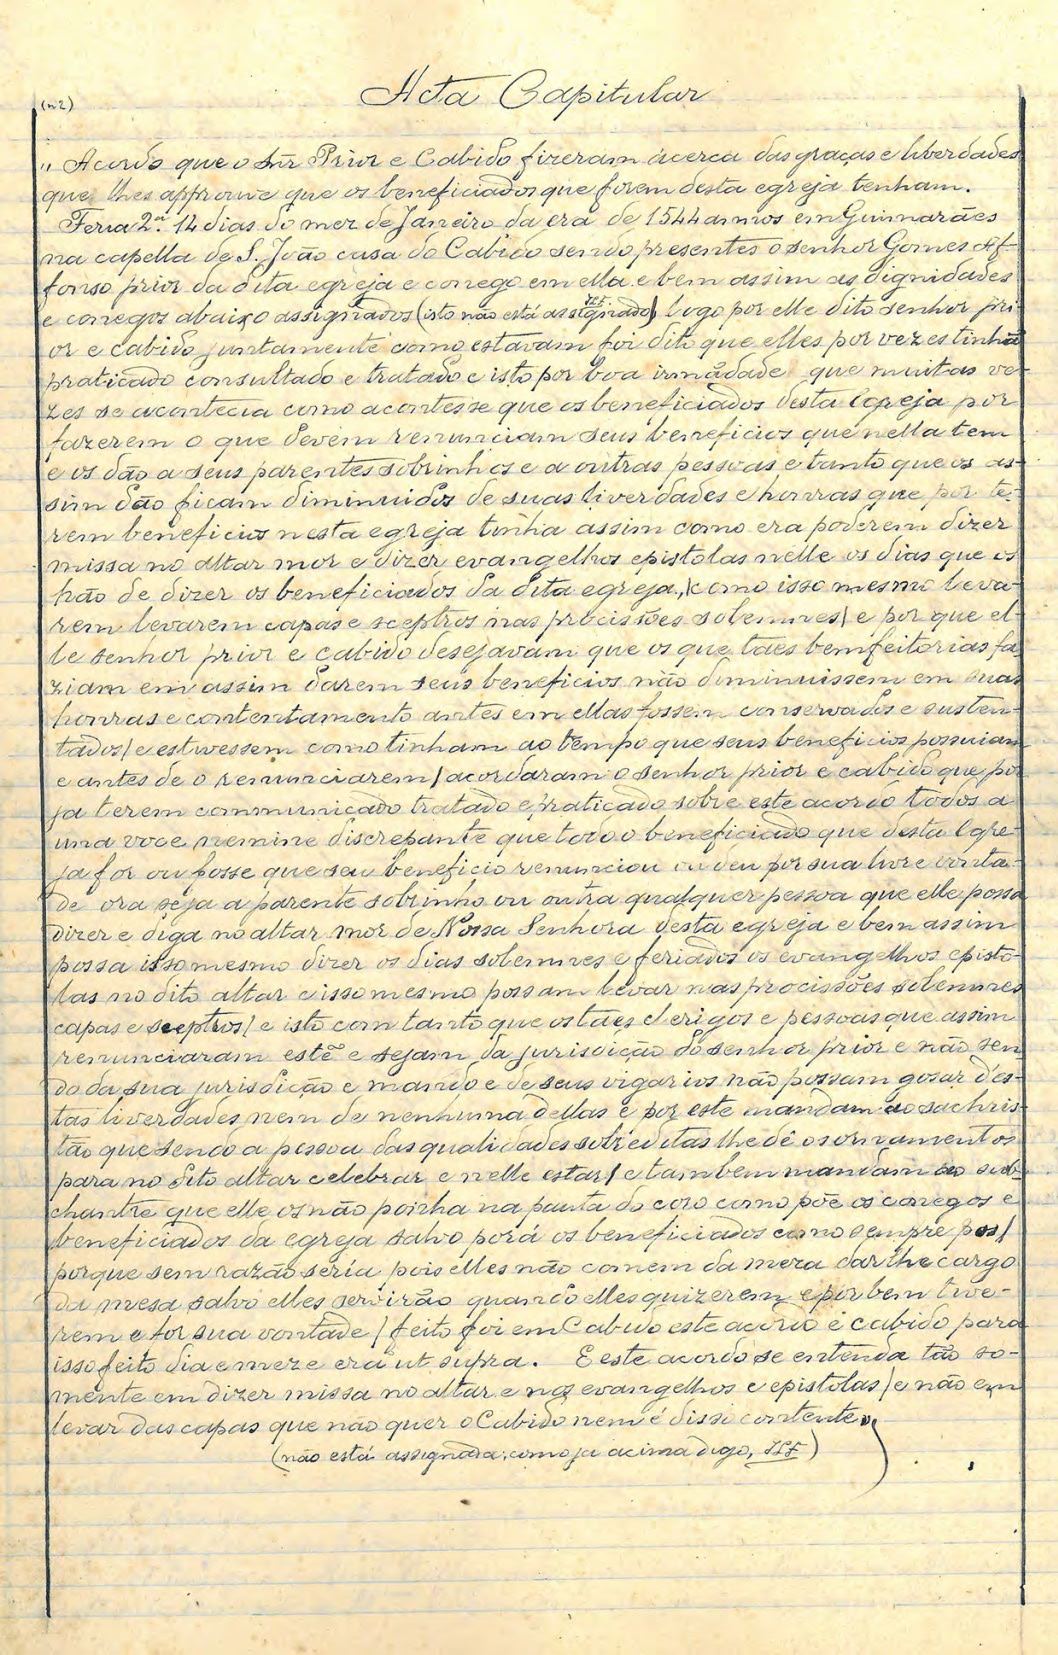 (nº2)
Acta Capitular
" Acordo que o Snr Prior e Cabido fizeram ácerca das graças e liberdades
que lhes approuve que os beneficiados que forem desta egreja tenham.
Feria 2ª. 14 dias do mez de Janeiro da era de 1544 annos em Guimarães
na capella de S. João casa do Cabido sendo presentes o senhor Gomes Af-
fonso prior da dita egreja e conego em ella e bem assim as dignidades
e conegos abaixo assignados (isto não está assignado) logo por elle dito senhor pri-
or e cabido juntamente como estavam foi dito que elles por vezes tinhã
praticado consultado e tratado e isto por boa irmãdade que muitas ve-
zes se acontecia como acontesse que os beneficiados desta Egreja por
fazerem o que devem renunciam seus beneficios que nella tem
e os dão a seus parentes sobrinhos e a outras pessoas e tanto que os as-
sim dão ficam diminuidos de suas liverdades e honras que por te-
rem beneficios nesta egreja tinha assim como era poderem dizer
missa no altar mor e dizer evangelhos epistolas nelle os dias que os
hão de dizer os beneficiados da dita egreja, como isso mesmo leva-
rem levarem capas e sceptros nas procissões solemnes/ e por que el-
le senhor prior e cabido desejavam que os que táes bemfeitorias fa-
ziam em assim darem seus beneficios não diminuissem em suas
honras e contentamento antes em ellas fossem conservados e susten-
tados/ e estivessem como tinham ao tempo que seus beneficios possuiam
e antes de o renunciarem/ acordaram o senhor prior e cabido que por
ja terem communicado tratado e praticado sobre este acordo todos a
una voce nemine discrepante que todo o beneficiado que desta Egre-
ja for ou fosse que seu beneficio renunciou ou deu por sua livre vonta-
de ora seja a parente sobrinho ou outra qualquer pessoa que elle possa
dizer e diga no altar mor de Nossa Senhora desta egreja e bem assim
possa isso mesmo dizer os dias solemnes e feriados os evangelhos episto-
las no dito altar e isso mesmo possam levar nas procissões solemnes
capas e sceptros/ e isto com tanto que os táes clerigos e pessoas que assim
renunciaram estẽ e sejam da jurisdição do senhor prior e não sen-
do da sua jurisdição e mando e de seus vigarios não possam gosar des-
tas liverdades nem de nenhuma dellas e por este mandam ao sachris-
tão que sendo a pessoa das qualidades sobreditas lhe dê os ornamentos
para no dito altar celebrar e nelle estar/ e tambem mandam ao sub-
chantre que elle os não ponha na pauta do coro como põe os conegos e
beneficiados da egreja salvo porá os beneficiados como sempre pos/
porque sem razão sería pois elles não comem da meza darlhe cargo
da mesa salvo elles servirão quando elles quizerem e por bem tive-
rem e for sua vontade/ feito foi em Cabido este acordo e cabido para
isso feito dia e mez e era ut supra. E este acordo se entenda tão so-
mente em dizer missa no altar e nos evangelhos e epistolas/ e não em
levar das capas que não quer o Cabido nem é disso contente"
(não está assignada, como ja acima digo, JLF)